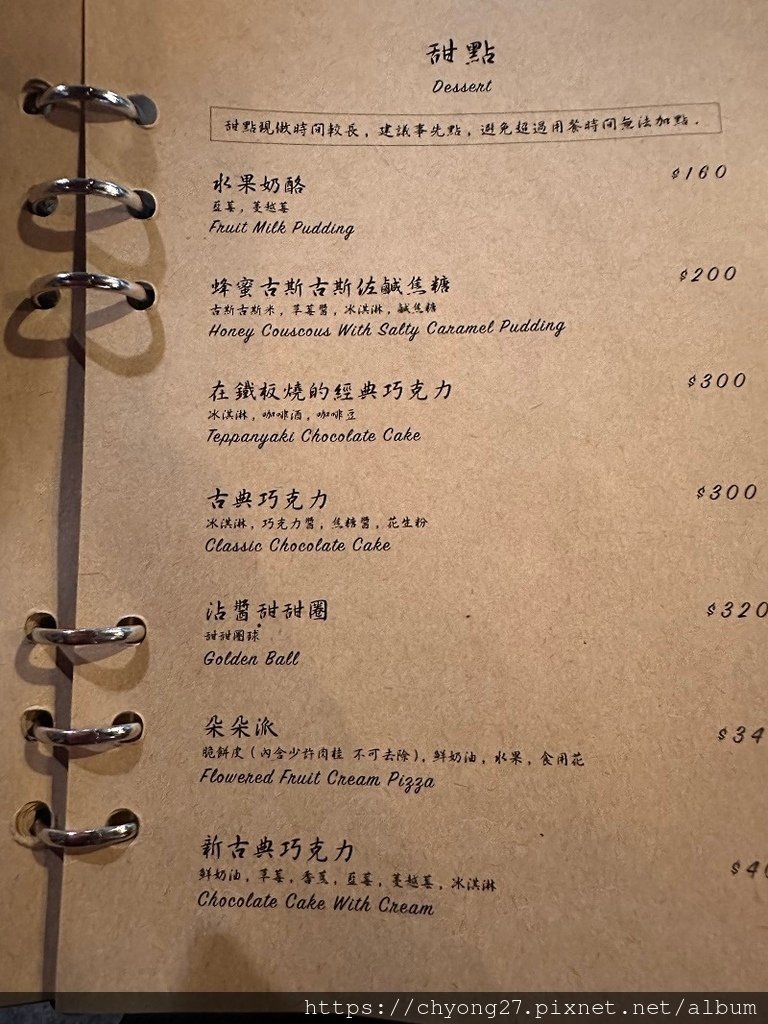 甜點
Dessert
甜點現做時間較長，建議事先點，避免超過用餐時間無法加點．
水果奶酪 $160
藍莓，蔓越莓
Fruit Milk Pudding
蜂蜜古斯古斯佐鹹焦糖 $200
古斯古斯米，草莓醬，冰淇淋，鹹焦糖
Honey Couscous With Salty Caramel Pudding
在鐵板燒的經典巧克力 $300
冰淇淋，咖啡酒，咖啡豆
Teppanyaki Chocolate Cake
古典巧克力 $300
冰淇淋，巧克力醬，焦糖醬，花生粉
Classic Chocolate Cake
沾醬甜甜圈 $320
甜甜圈球
Golden Ball
朵朵派 $34
脆餅皮（內含少許肉桂 不可去除），鮮奶油，水果，食用花
Flowered Fruit Cream Pizza
新古典巧克力 $4
鮮奶油，草莓，香蕉，藍莓，蔓越莓，冰淇淋
Chocolate Cake With Cream
https://chyong27.pixnet.net/album